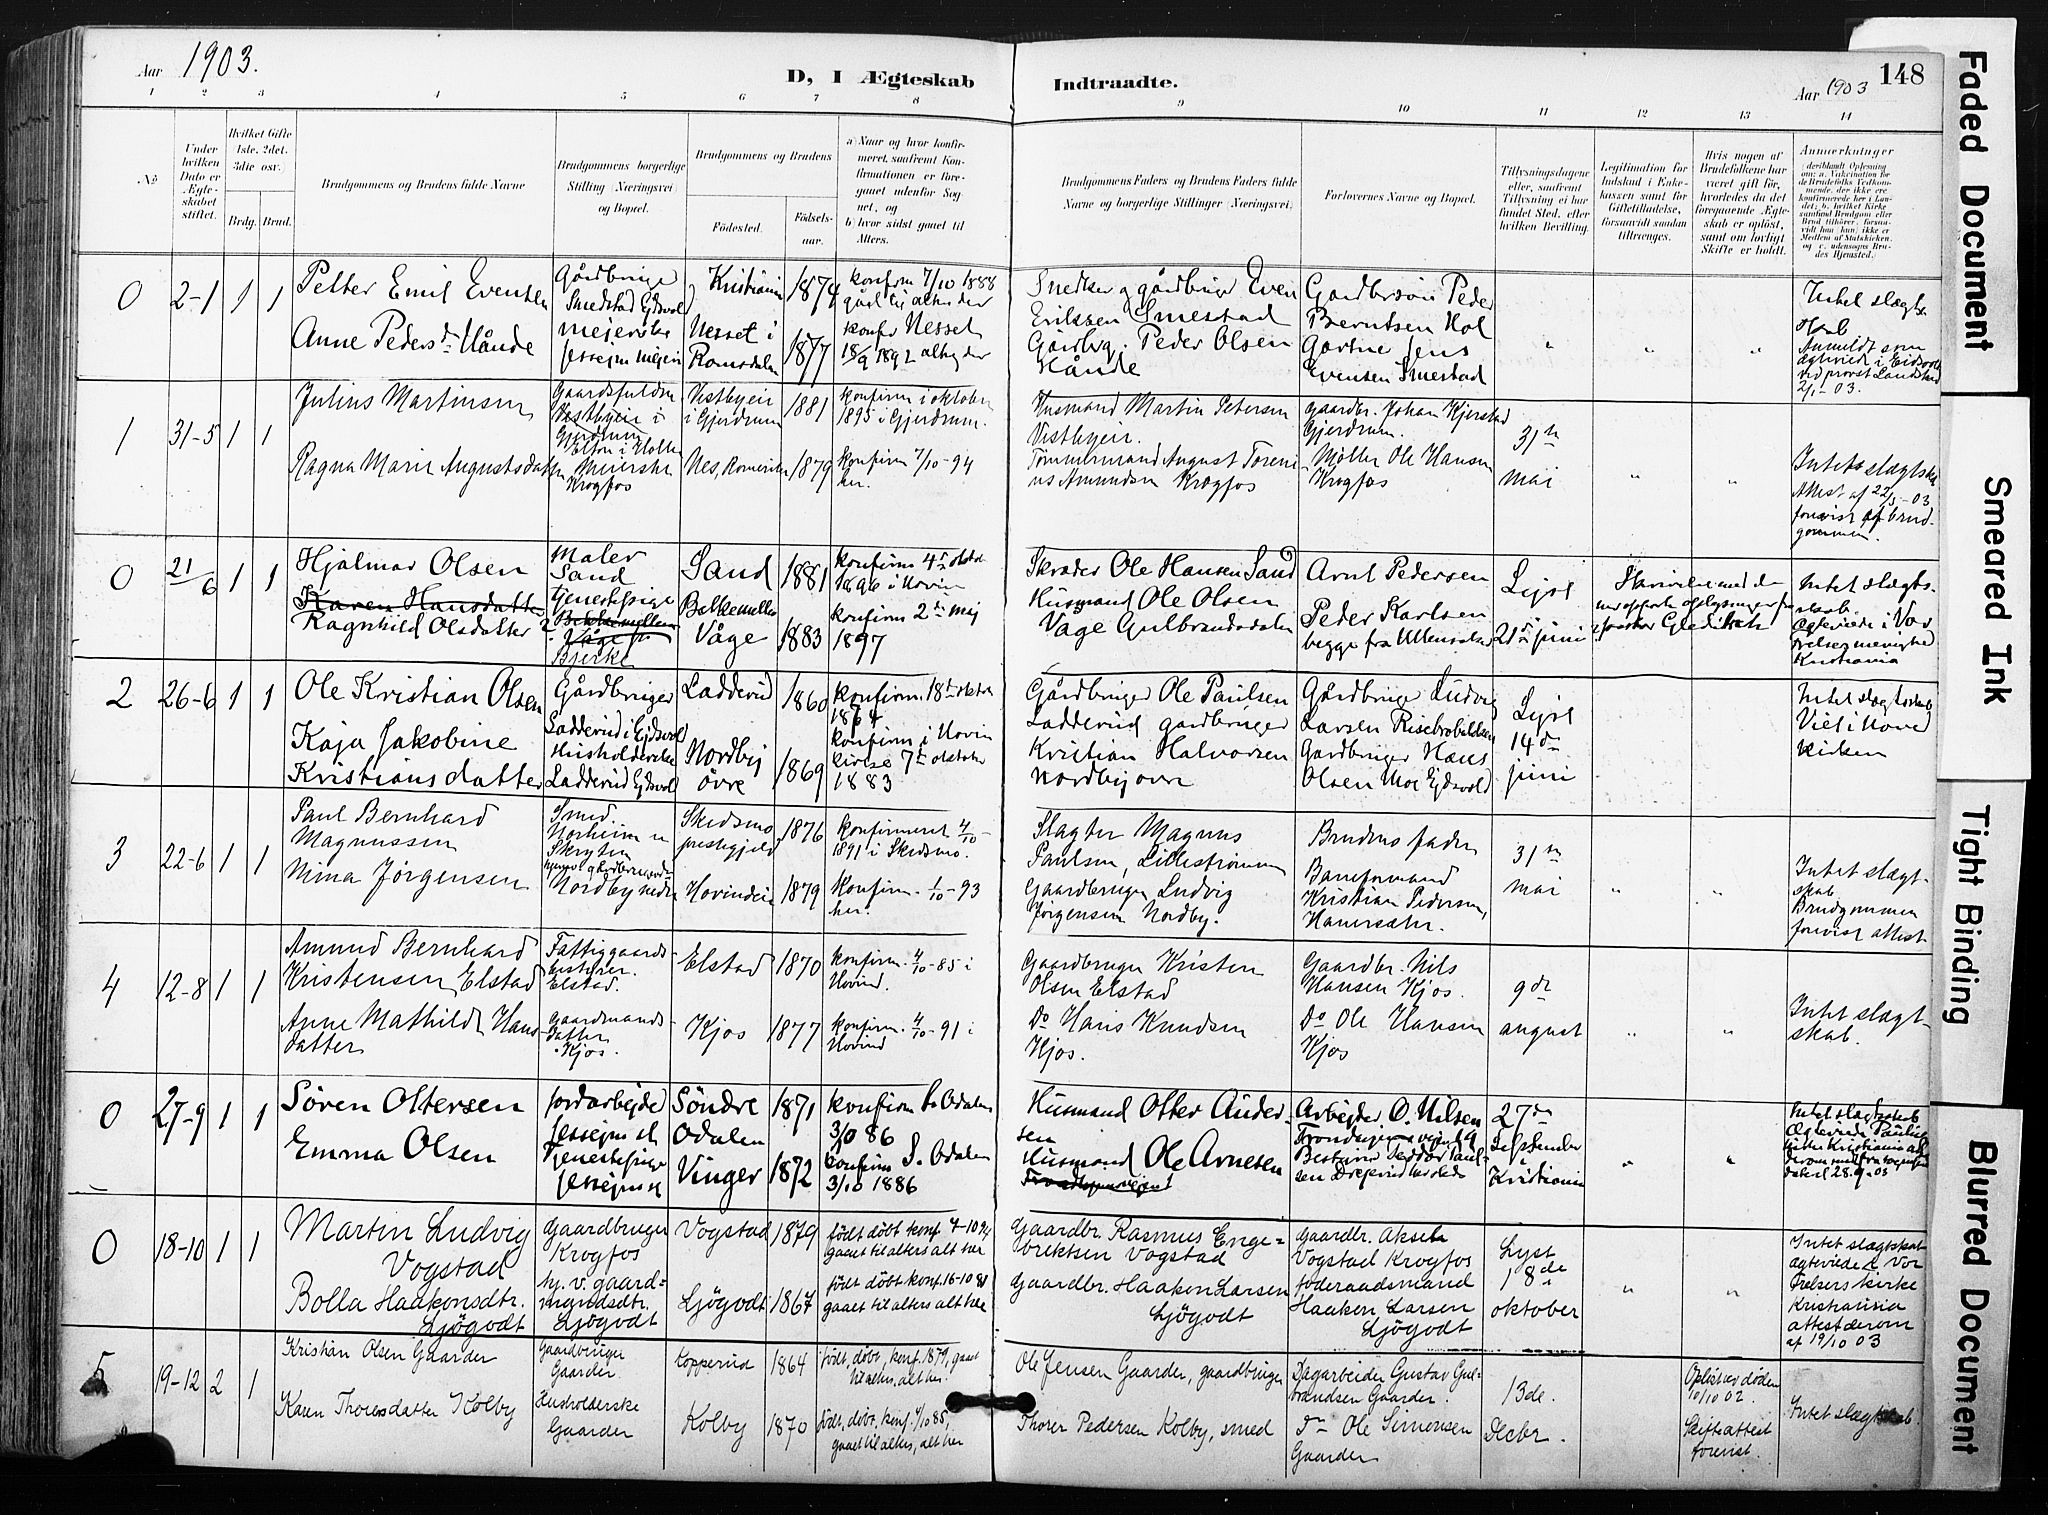 Aar 1903.
D, I Ægteskab
Indtraadte.
Aar 1903
148
1 2 3 4 5 6 7 8 9 10 11 12 13 14
№
Under hvilken Dato er Ægteskabet stiftet.
Hvilket Gifte 1ste, 2det, 3die osv.
Brdg. Brud.
Brudgommens og Brudens fulde Navne
Brudgommens borgerlige Stilling (Næringsvei) og Bopæl.
Brudgommens og Brudens
Fødested.
Fødselsaar.
a) Naar og hvor konfirmeret, saafremt Konfirmationen er foregaaet udenfor Sognet, og
b) hvor sidst gaaet til Alters.
Brudgommens Faders og Brudens Faders fulde Navne og borgerlige Stillinger (Næringsvei)
Forlovernes Navne og Bopæl.
Tillysningsdagene eller, saafremt Tillysning ei har fundet Sted, efter hvilken Bevilling.
Legitimation for Indskud i Enkekassen samt for Giftetilladelse, forsaavidt saadan tiltrænges.
Hvis nogen af Brudefolkene har været gift før, hvorledes da det foregaaende Ægteskab er opløst, samt om lovligt Skifte er holdt.
Anmærkninger
0 2-1 1 1
Petter Emil Evensen
Gårdbruger Smedstad Ejdsvol
Kristiania 1874
konfirm 7/10 1888 gået til alters der
Snedker og gårdbruger Even Eriksen Smestad
Gardbersøn Peder Berntsen Hol
Intet slægtskab
Anmeldt som ægteviede i Eidsvold ved provst Landstad 2/1-03.
Anne Pedersdr Hånde
meierske Jessejm mejeri
Nesset i Romsdalen 1877
konfir Nesset 18/9 1892 alters der
Gårdbrg. Peder Olsen Hånde
Gartne Jens Evensen Smestad
1 31-5 1 1
Julius Martinsen
Vestbyeie i Gjerdrum
Vestbyeie i Gjerdrum 1881
konfirm i oktober 1895 i Gjerdrum.
Husmand Martin Petersen Vestbyeie.
gaardbr. Johan Kjerstad Gjerdrum.
31te mai
Ragna Marie Augustsdatter
Meierske Krogfos
Nes, Romerike 1879
konfirm 7/10-94 her.
Tømmermand August Torenius Amundsen Krogfos
Møller Ole Hansen Krogfos
Intet slægtskab
Attest af 22/5-03 forevist af brudgommen.
0 21/6 1 1
Hjalmar Olsen
Maler Sand
Sand 1881
konfirm 4de oktober 1896 i Hovin
Skræder Ole Hansen Sand
Arnt Pedersen
Lyst 21de juni
Karen Hansdatter
Ragnhild Olsdatter
Tjenestepige Bjerke
Bekkemellem Våge 1883
konfirm 2de mej 1897
Husmand Ole Olsen Våge Gulbrandsdalen
Peder Karlsen begge fra Ullensaker
Intet slægtskab.
Ægteviede i Vor Frelsers menighed Kristiania
2 26-6 1 1
Ole Kristian Olsen
Gårdbruger Ladderud i Ejdsvol
Ladderud 1860
konfirm 18de oktober 1874
Gårdbruger Ole Paulsen Ladderud
Gårdbruger Ludvig Larsen Risebrobakken
Lyst 14de juni
Kaja Jakobine Kristiansdatter
Husholderske Ladderud Ejdsvol
Nordby øvre 1869
konfirm i Hovin kirke 7de oktober 1883
gardbruger Kristian Halvorsen Nordby øvre
Gardbruger Hans Olsen Moe Ejdsvold
Intet slægtskab
Viet i Hovekirken
3 22-6 1 1
Paul Bernhard Magnussen
Smed.
Skedsmo prestegjeld 1876
konfirmeret 4/10-1891 i Skedsmo.
Slagter Magnus Paulsen, Lillestrømmen
Brudens fader
31te mai
Nina Jørgensen
Nordby nedre
Hovindeie 1879
Konfirm. 1/10-93 her.
Gaardbruger Ludvig Jørgensen Nordby.
Baneformand Kristian Pedersen, Hauersæter.
Intet slægtskab
Brudgommen forevist attest.
4 12-8 1 1
Amund Bernhard Kristensen Elstad
Fattiggaardsbestyrer. Elstad.
Elstad 1870
konfirm. 4/10-85 i Hovind.
Gaardbruger Kristen Olsen Elstad
Gaardbr. Nils Hansen Kjos.
9de august
Anne Mathilde Hansdatter
Gaardmandsdatter Kjos.
Kjos 1877
konfirm. 4/10-91 i Hovind
Do Hans Knudsen Kjos.
Do Ole Hansen Kjos
Intet slægtskab.
0 27-9 1 1
Søren Oltersen
Jordarbejder Jessejm st
Søndre Odalen 1871
konfirm S. Odalen 3/10 86
Husmand Otter Andersen
Arbejder O. Nilsen
27de September i Kristiania
Emma Olsen
Tjenestepige Jessejm st
Vinger 1872
konfirm S. Odalen 3/10 1886
Husmand Ole Arnesen
Intet slægtskab
0 18-10 1 1
Martin Ludvig Vogstad
Gaardbruger Krogfos
Vogstad 1879
født døbt konf. 7-10 94 gaaet til alters alt her
Gaardbr. Rasmus Engebriktsen Vogstad
Gaardbr. Aksel Vogstad Krogfos
Lyst 18de oktober
Bolla Haakonsdtr. Ljøgodt
hj. v. gaardmandsdtr. Ljøgodt
Ljøgodt 1867
født døbt konf. 16-10 81 gaaet til alters alt her
Gaardbr. Haakon Larsen Ljøgodt
føderaadsmand Haaken Larsen Ljøgodt
Intet slægtskab
ægteviede i Vor Frelsers kirke Kristiania attest derom af 19/10 03
5 19-12 2 1
Kristian Olsen Gaarder
Gaardbruger Gaarder
Kopperud 1864
født, døbt, konf. 1879, gaaet til alters, alt her.
Ole Jensen Gaarder, gaardbruger
Dagarbeider Gustav Gulbrandsen Gaarder.
13de. Decbr.
Opløst ved døden 10/10 02.
Skifteattest forevist.
Karen Thoresdatter Kolby
Husholderske Gaarder
Kolby 1870
født, døbt, konf. 4/10 85, gaaet til alters, alt her
Thorer Pedersen Kolby, smed
do Ole Simensen Gaarder
Intet slægtskab.
Faded Document
Smeared Ink
Tight Binding
Blurred Document